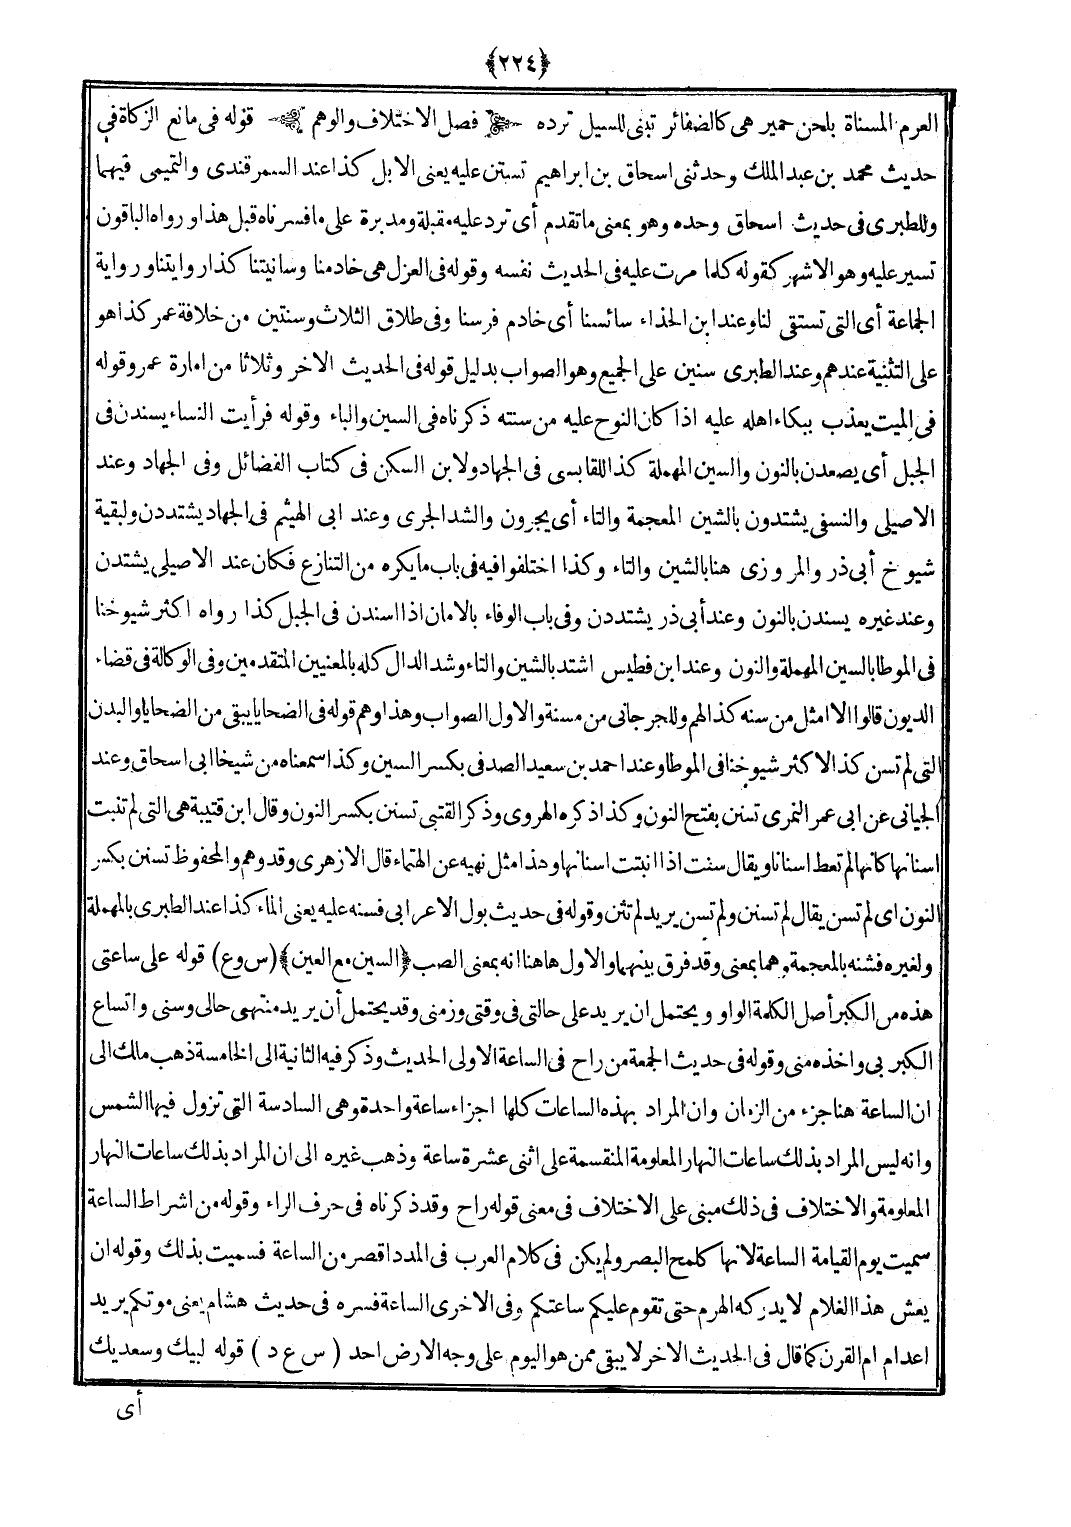 ﴿٢٢٤﴾
العرم المسناة بلحن حمير هى كالضفائر تبنى للسيل ترده فصل الاختلاف والوهم قوله فى مانع الزكاة فى
حديث محمد بن عبد الملك وحدثنى اسحاق بن ابراهيم تستن عليه يعنى الابل كذا عند السمرقندى والتميمى فيهما
وللطبرى فى حديث اسحاق وحده وهو بمعنى ما تقدم أى ترد عليه مقبلة ومدبرة على ما فسرناه قبل هذا و رواه الباقون
تسير عليه وهو الاشهر كقوله كلما مرت عليه فى الحديث نفسه وقوله فى العزل هى خادمنا وسانيتنا كذا روايتنا و رواية
الجماعة أى التى تستقى لنا وعند ابن الحذاء سائسنا أى خادم فرسنا وفى طلاق الثلاث وسنتين من خلافة عمر كذا هو
على التثنية عندهم وعند الطبرى سنين على الجميع وهو الصواب بدليل قوله فى الحديث الاخر وثلاثا من امارة عمر وقوله
فى الميت يعذب ببكاء اهله عليه اذا كان النوح عليه من سنته ذكرناه فى السين والباء وقوله فرأيت النساء يسندن فى
الجبل أى يصعدن بالنون والسين المهملة كذا للقابسى فى الجهاد ولابن السكن فى كتاب الفضائل وفى الجهاد وعند
الاصيلى والنسفى يشتدون بالشين المعجمة والتاء أى يجرون والشد الجرى وعند ابى الهيثم فى الجهاد يشتددن ولبقية
شيوخ أبى ذر والمروزى هنا بالشين والتاء وكذا اختلفوا فيه فى باب ما يكره من التنازع فكان عند الاصيلى يشتدن
وعند غيره يسندن بالنون وعند أبى ذر يشتددن وفى باب الوفاء بالامان اذا اسندن فى الجبل كذا رواه اكثر شيوخنا
فى الموطا بالسين المهملة والنون وعند ابن فطيس اشتد بالشين والتاء وشد الدال كله بالمعنيين المتقدمين وفى الوكالة فى قضاء
الديون قالوا الا امثل من سنه كذا لهم وللجرجانى من مسنة والاول الصواب وهذا وهم قوله فى الضحايا يبقى من الضحايا والبدن
التى لم تسن كذا لاكثر شيوخنا فى الموطا وعند احمد بن سعيد الصدفى بكسر السين وكذا سمعناه من شيخنا ابى اسحاق وعند
الجيانى عن ابى عمر النمرى تسنن بفتح النون وكذا ذكره الهروى وذكر القتبى تسنن بكسر النون وقال ابن قتيبة هى التى لم تنبت
اسنانها كانها لم تعط اسنانا ويقال سنت اذا انبتت اسنانها وهذا مثل نهيه عن الهتماء قال الازهرى وقد وهم والمحفوظ تسنن بكسر
النون اى لم تسن يقال لم تسنن ولم تسن يريد لم تثن وقوله فى حديث بول الاعرابى فسنه عليه يعنى الماء كذا عند الطبرى بالمهملة
ولغيره فشنه بالمعجمة وهما بمعنى وقد فرق بينهما والاول هاهنا انه بمعنى الصب ﴿السين مع العين﴾ (س و ع) قوله على ساعتى
هذه من الكبر أصل الكلمة الواو ويحتمل ان يريد على حالتى فى وقتى وزمنى وقد يحتمل أن يريد منتهى حالى وسنى واتساع
الكبر بى واخذه منى وقوله فى حديث الجمعة من راح فى الساعة الاولى الحديث وذكر فيه الثانية الى الخامسة ذهب مالك الى
ان الساعة هنا جزء من الزمان وان المراد بهذه الساعات كلها اجزاء ساعة واحدة وهى السادسة التى تزول فيها الشمس
وانه ليس المراد بذلك ساعات النهار المعلومة المنقسمة على اثنى عشرة ساعة وذهب غيره الى ان المراد بذلك ساعات النهار
المعلومة والاختلاف فى ذلك مبنى على الاختلاف فى معنى قوله راح وقد ذكرناه فى حرف الراء وقوله من اشراط الساعة
سميت يوم القيامة الساعة لانها كلمح البصر ولم يكن فى كلام العرب فى المدد اقصر من الساعة فسميت بذلك وقوله ان
يعش هذا الغلام لا يدركه الهرم حتى تقوم عليكم ساعتكم وفى الاخرى الساعة فسره فى حديث هشام يعنى موتكم يريد
اعدام ام القرن كما قال فى الحديث الاخر لا يبقى ممن هو اليوم على وجه الارض احد ( س ع د ) قوله لبيك وسعديك
أى